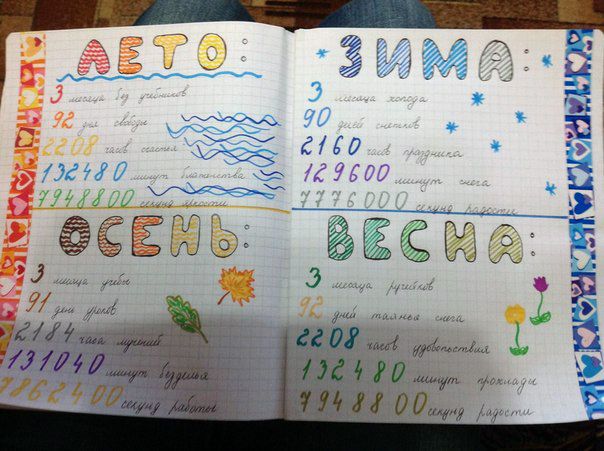 ЛЕТО:
3 месяца без учебников
92 дня свободы
2208 часов счастья
132480 минут блаженства
7948800 секунд яркости
ОСЕНЬ:
3 месяца учебы
91 день уроков
2184 часа мучений
131040 минут безделья
7862400 секунд работы
ЗИМА:
3 месяца холода
90 дней снежков
2160 часов праздника
129600 минут снега
7776000 секунд радости
ВЕСНА:
3 месяца ручейков
92 дней таянья снега
2208 часов удовольствия
132480 минут прохлады
7948800 секунд радости